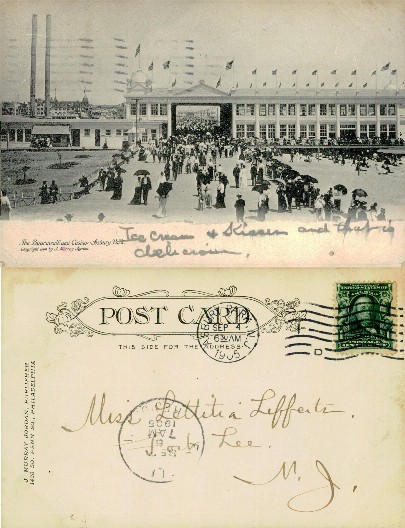 The Boardwalk and Casino Asbury Park
Copyright 1905 by J. Murray Jordan
Ice cream & Kisses and that is
delicious.
POST CARD
THIS SIDE FOR THE ADDRESS
ASBURY
SEP 4
6 30 AM
1905
N.J.
D
J. MURRAY JORDAN, PUBLISHER
1420 SO. PENN SQ., PHILADELPHIA
Miss Lettitia Lefferts.
Lee.
N. J.
SEP
7 AM
1905